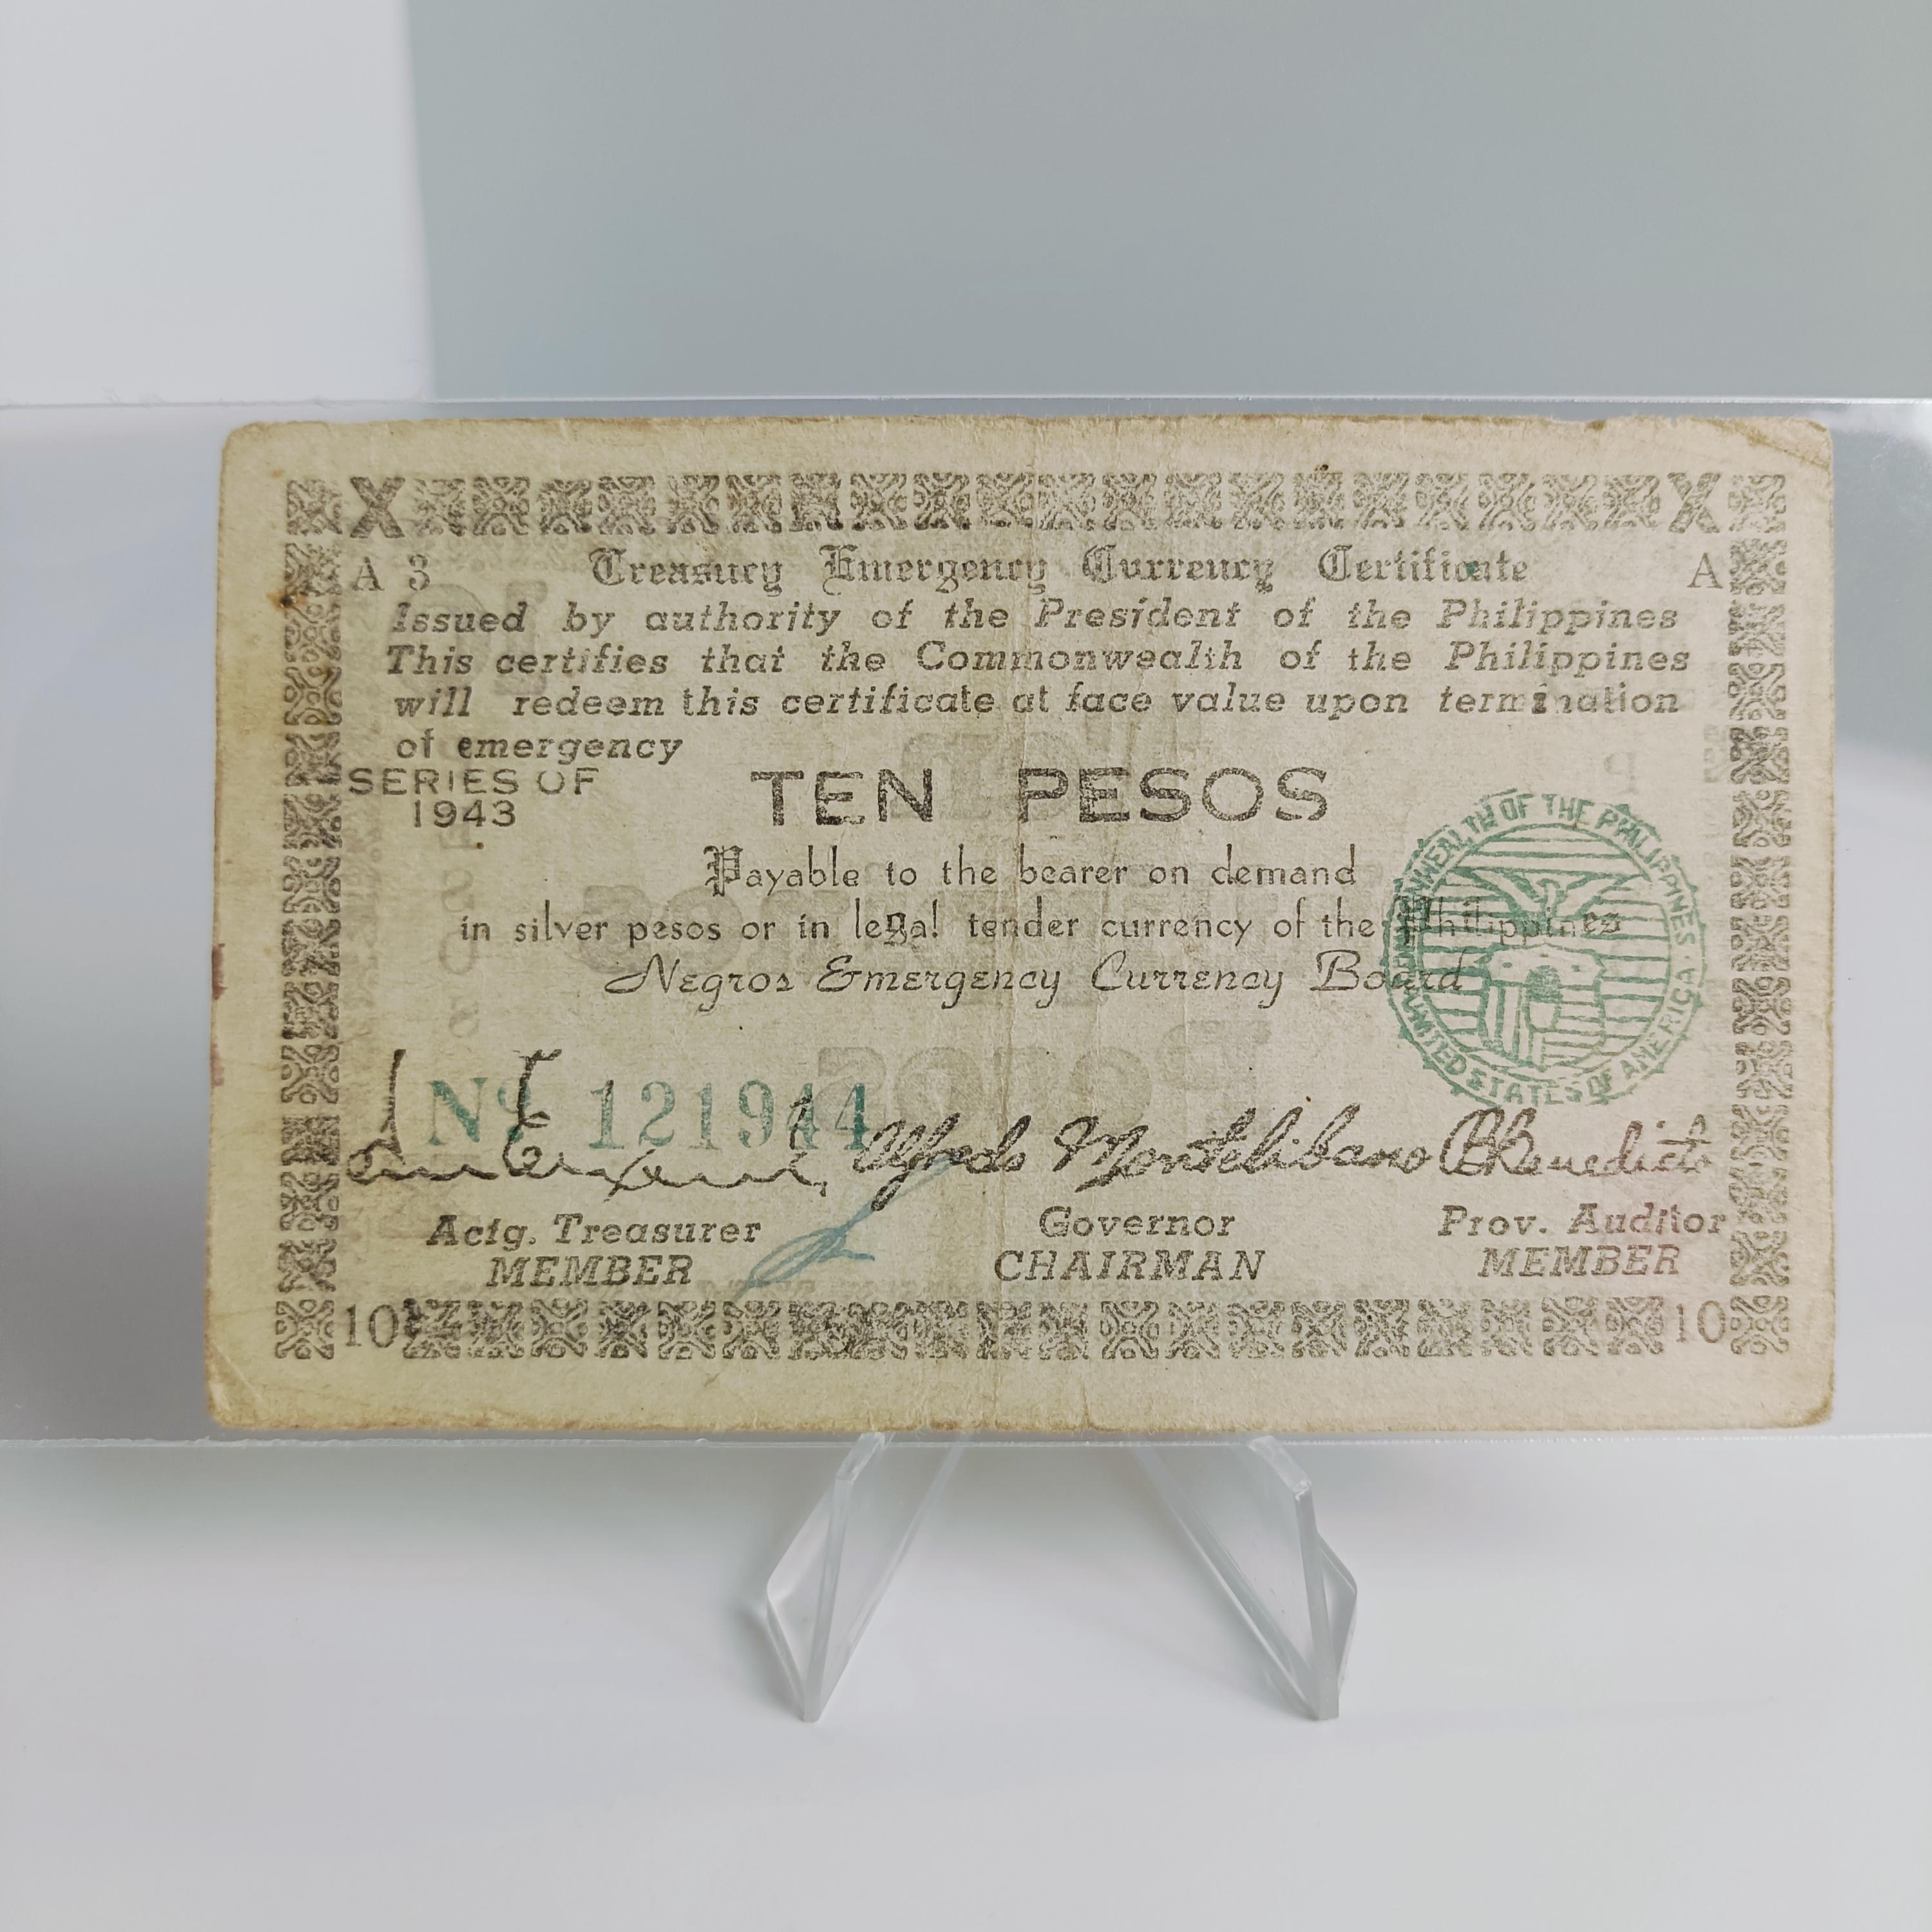 X X
A 3 Treasury Emergency Currency Certificate A
Issued by authority of the President of the Philippines
This certifies that the Commonwealth of the Philippines
will redeem this certificate at face value upon termination
of emergency
SERIES OF
1943
TEN PESOS
Payable to the bearer on demand
in silver pesos or in legal tender currency of the Philippines
Negros Emergency Currency Board
COMMONWEALTH OF THE PHILIPPINES
UNITED STATES OF AMERICA
Nº 121944
Alfredo Montelibano
Actg. Treasurer Governor Prov. Auditor
MEMBER CHAIRMAN MEMBER
10 10